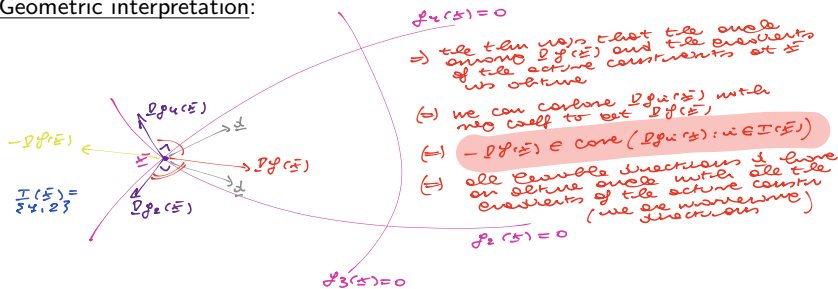 Geometric interpretation:
g4(x̄)=0
=> the thm says that the angle
among ∇f(x̄) and the gradients
of the active constraints at x̄
is obtuse
∇g4(x̄)
d
-∇f(x̄)
x̄
∇f(x̄)
d
I(x̄)=
{4,2}
∇g2(x̄)
(=) we can combine ∇gi(x̄) with
neg coeff to get ∇f(x̄)
(=) -∇f(x̄) ∈ cone(∇gi(x̄): i ∈ I(x̄))
(=) all feasible directions d have
an obtuse angle with all the
gradients of the active constr
(we are
directions)
g2(x̄)=0
g3(x̄)=0